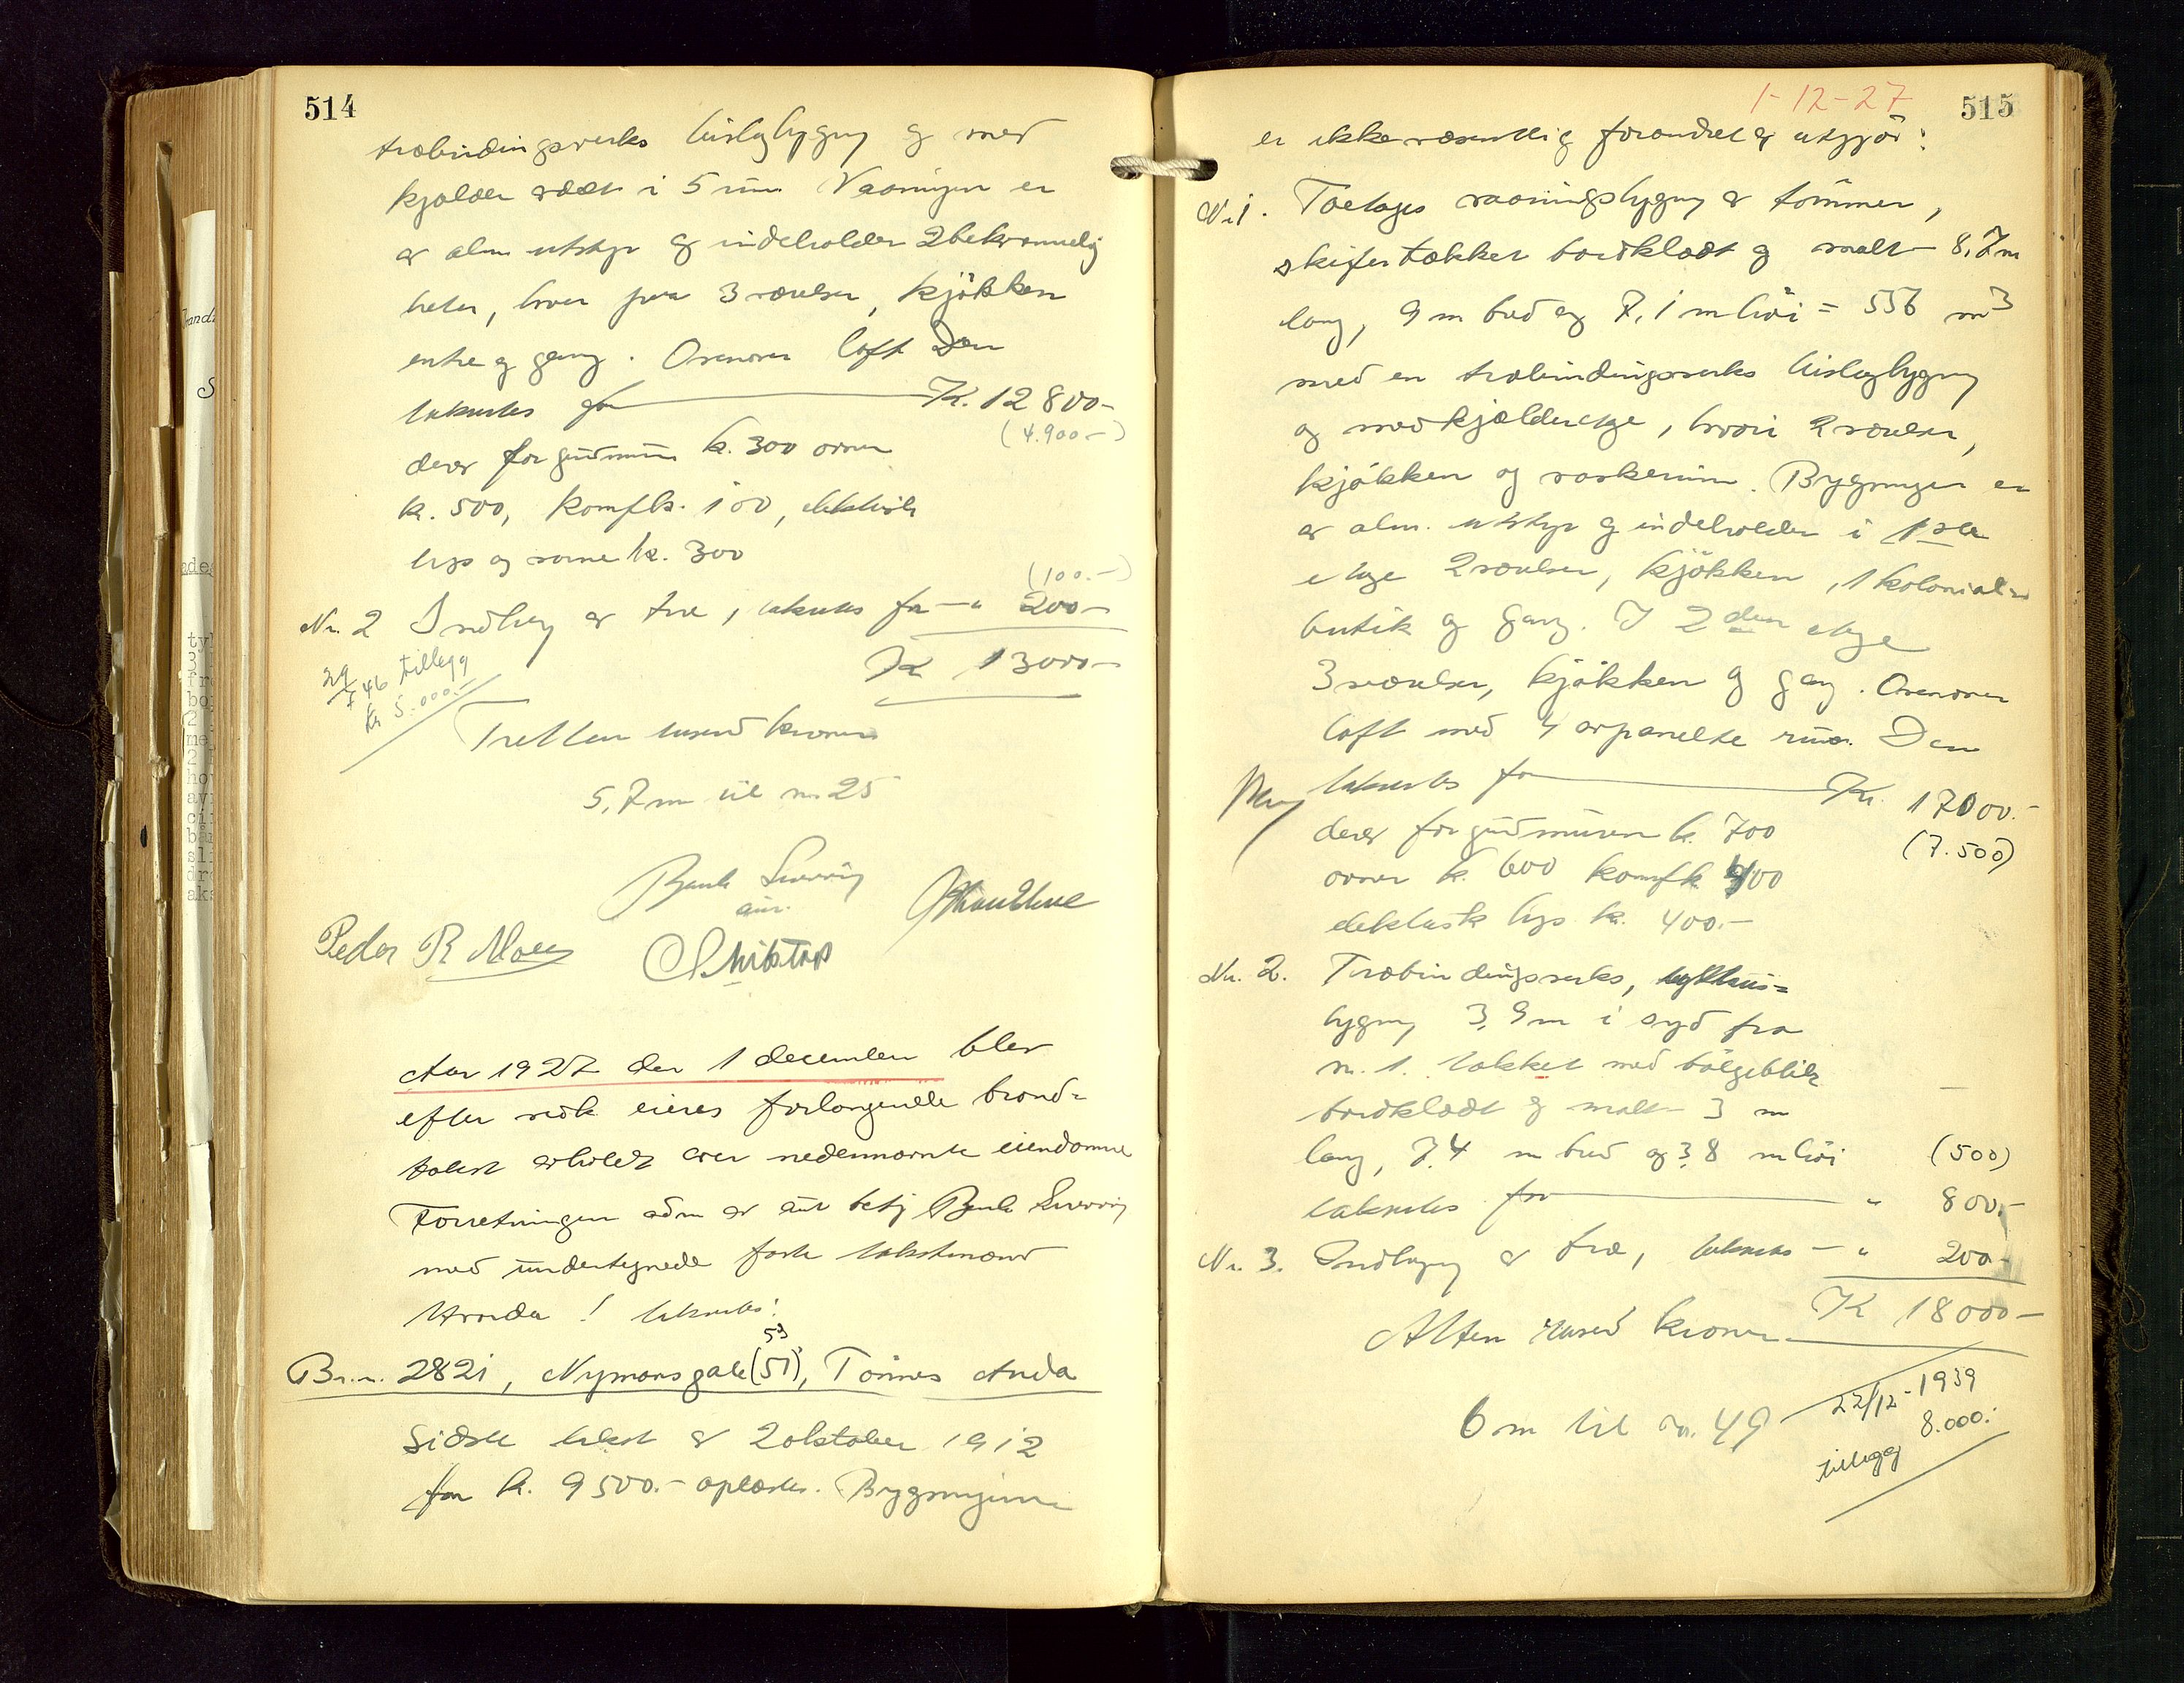 514
træbindingsverks bislagbygng og med
kjælder vædt i 5 rum Vaaningen er
av alm utstyr og indeholder 2 bekvemmelig
heter, hver paa 3 værelser, kjökken
entre og gang. Ovenover loft Den
takseres for K. 12800-
(4.900-)
derav for grundmuren k. 300 ovner
k. 500, komfk. 100, elektrisk
lys og varme k. 300
(100.-)
Nr. 2 Indhegn av træ, takseres for - " 200-
Kr 13000-
29/7 46 tillegg
kr 5.000.-
Tretten tusend kroner
5,7 m til nr. 25
Bernh Sverdrig
aut.
Peder R. Moen
Aar 1927 den 1 december blev
efter vedk eieres forlangende brand-
takst avholdt over nedennævnte eiendomme
Forretningen adm av aut betj Bernh Sverdrig
med undertegnede faste takstmænd
Hvorda ! takseres:
53
Br.nr. 2821, Nymansgate (51), Tönnes Anda
Sidste takst av 2 oktober 1912
for k. 9500.- oplæstes. Bygningerne
1-12-27
515
er ikke væsentlig forandret og utgjør:
Nr 1. Toetages vaaningsbygng av tömmer,
skifertækket bordklædt og malt 8,7 m
lang, 9 m bred og 7,1 m höi = 556 m3
med en træbindingsverks bislagbygng
og med kjælderetage, hvori 2 værelser,
kjökken og vaskerum. Bygningen er
av alm. utstyr og indeholder i 1ste
etage 2 værelser, kjökken, 1 kolonial-
butik og gang. I 2den etage
3 værelser, kjökken og gang. Ovenover
loft med 4 avpanelte rum. Den
takseres for Kr. 17000.-
derav for grundmuren k. 700
(7.500)
ovner k. 600 komfk 400
elektrisk lys k. 400.-
Nr. 2. Træbindingsverks,
bygng 3,9 m i syd fra
nr. 1. tækket med bölgeblik
bordklædt og malt 3 m
lang, 7,4 m bred og 3,8 m höi (500)
takseres for " 800.-
Nr. 3. Indhegng av træ, takseres - " 200-
Kr 18000-
Atten tusend kroner
6 m til nr. 49
22/12-1939
8.000.-
tillegg